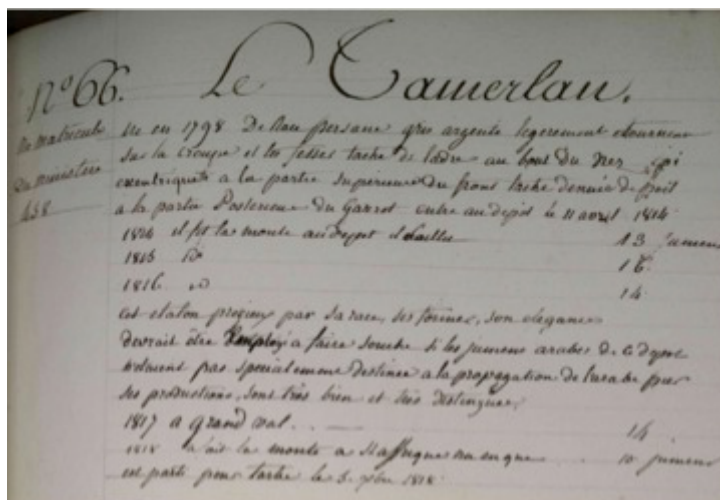 N° 66. Le Tamerlan.
N° matricule
du ministère
438
Né en 1798 De Race persane gris argenté legerement etourneau
Sur la croupe et les fesses tache de ladre au bout du nez épi
excentrique à la partie Supérieure du front tache denuée de poil
a la partie Posterieure du Garrot entre au depot le 11 avril 1814
1814 il fit la monte au depot 13 jumens
1815 do 16
1816 do 14
cet etalon précieux par sa race, ses formes, son elegance
devrait être Employé a faire souche si les jumens arabes de ce depot
n'etaient pas specialement destinées a la propagation de l'arabe pur
ses productions sont très bien et très distinguées
1817 a Grand val 14
1818 a fait la monte a 10 jumens
est parti pour tarbes le 3. 1818